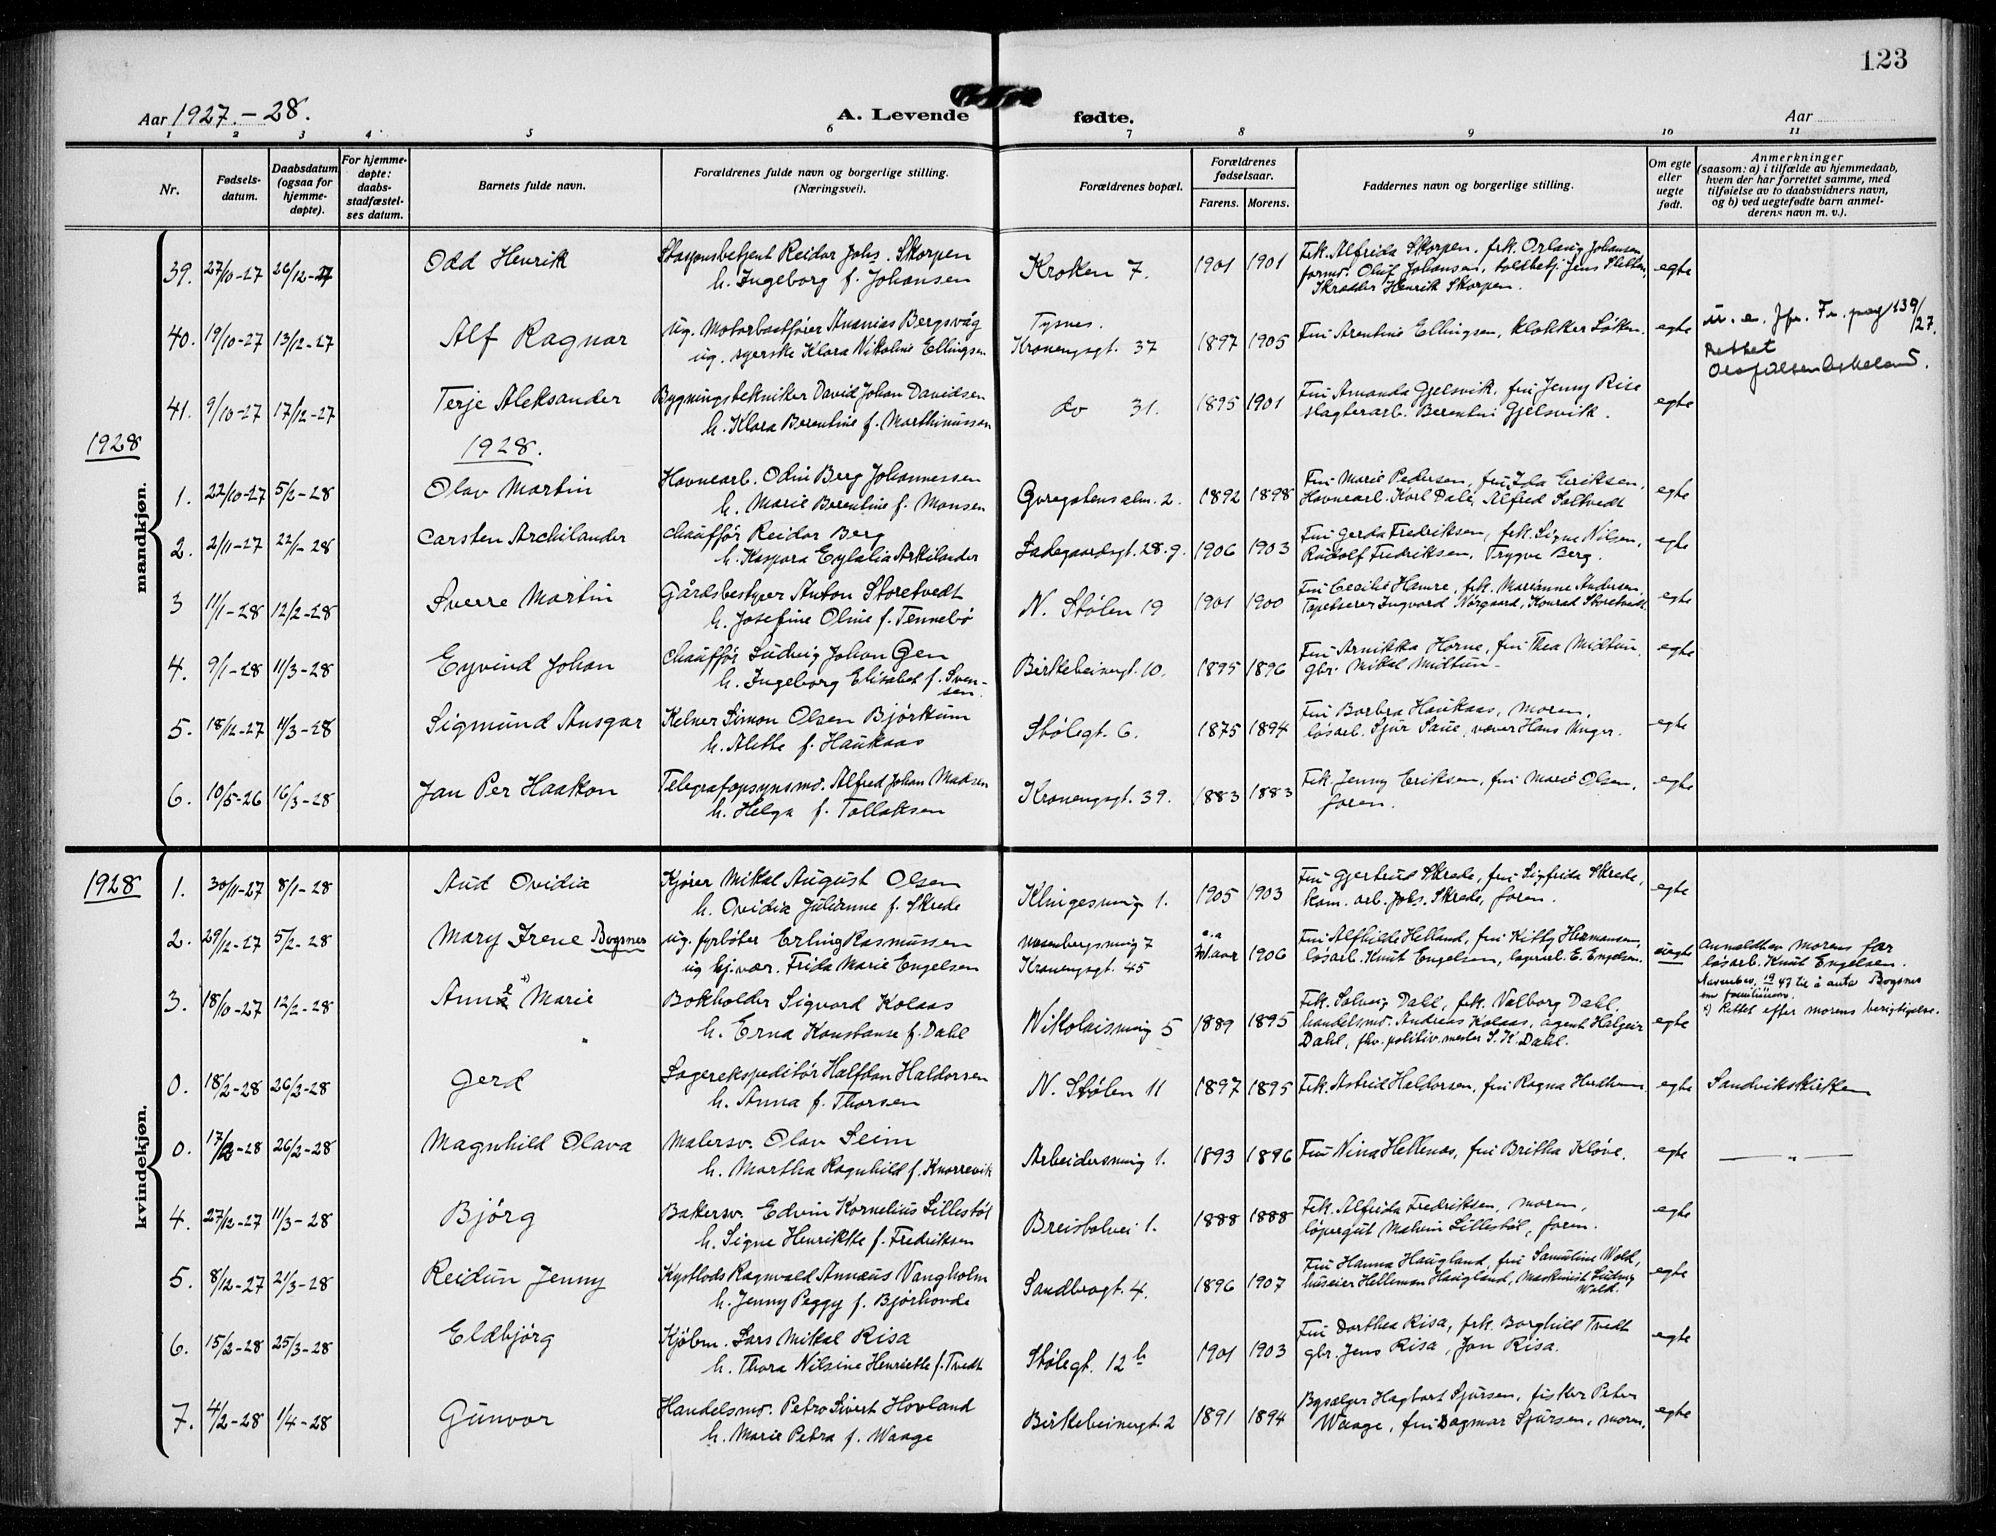 123
Aar 1927.-28.
A. Levende fødte.
Aar
1 2 3 4 5 6 7 8 9 10 11
Nr.
Fødsels-
datum.
Daabsdatum
(ogsaa for
hjemme-
døpte).
For hjemme-
døpte:
daabs-
stadfæstel-
ses datum.
Barnets fulde navn.
Forældrenes fulde navn og borgerlige stilling.
(Næringsvei).
Forældrenes bopæl.
Forældrenes
fødselsaar.
Farens. Morens.
Faddernes navn og borgerlige stilling.
Om egte
eller
uegte
født.
Anmerkninger
(saasom: a) i tilfælde av hjemmedaab,
hvem der har forrettet samme, med
tilføielse av to daabsvidners navn,
og b) ved uegtefødte barn anmel-
derens navn m. v.).
mandkjøn.
39. 27/10-27 26/12-27 Odd Henrik
Stasjonsbetjent Reidar Johs. Skorpen
h. Ingeborg f. Johansen
Kroken 7. 1901 1901
Frk. Alfrida Skorpen, frk. Orlaug Johansen
formd. Oluf Johansen, toldbetj. Jens Sletten,
Skrædder Henrik Skorpen.
egte
40. 19/10-27 13/12-27 Alf Ragnar
Ug. Motorbaatfører Ananias Bergsvåg
ug. syerske Klara Nikoline Ellingsen
Tysnes.
Kronengsgt. 37 1897 1905
Fru Arentine Ellingsen, klokker Løtken.
egte
u. e. Jfr. Fr. pag 139/27.
Rettet
41. 9/10-27 17/12-27 Terje Aleksander
Bygningstekniker David Johan Davidsen
h. Klara Berentine f. Marthinussen
do 31. 1895 1901
Fru Amanda Gjelsvik, fru Jenny Rise
slagterarb. Berentin Gjelsvik.
egte
1928
1928.
1. 22/10-27 5/2-28 Olav Martin
Havnearb. Odin Berg Johannessen
h. Marie Berentine f. Monsen
Øvregatens alm. 2. 1892 1898
Fru Marie Pedersen, fru Ida Eriksen,
Havnearb. Karl Dale, Alfred Saltvedt
egte
2. 2/11-27 22/1-28 Carsten Archilander
Chauffør Reidar Berg
h. Kaspara Eylalia Arkilander
Ladegaardsgt. 28.g. 1906 1903
Fru Gerda Fredriksen, frk. Signe Nilsen,
Rudolf Fredriksen, Trygve Berg.
egte
3 11/1-28 12/2-28 Sverre Martin
Gårdsbestyrer Anton Storetvedt
h. Josefine Oline f. Tennebø
N. Stølen 19 1901 1900
Fru Cecilie Hamre, frk. Marianne Andersen,
Tapetserer Ingvard Nørgaard, Konrad Storetvedt
egte
4. 9/1-28 11/3-28 Eyvind Johan
Chauffør Ludvig Johan Gen
h. Ingeborg Elisabet f. Sven-
sen.
Birkebeinergt. 10. 1895 1896
Fru Arnikka Horne, fru Thea Midtun,
gbr. Mikal Midtun
egte
5. 18/12-27 11/3-28 Sigmund Ansgar
Kelner Simon Olsen Bjørkum
h. Alette f. Haukaas
Stølegt. 6. 1875 1894
Fru Barbra Haukaas, moren,
løsarb. Sjur Saue, væver Hans Unger.
egte
6. 10/5-26 16/3-28 Jan Per Haakon
Telegrafopsynsmd. Alfred Johan Madsen
h. Helga f. Tollaksen
Kronengsgt. 39. 1883 1883
Frk. Jenny Eriksen, fru Marie Olsen,
faren.
egte
1928
kvindekjøn.
1. 30/11-27 8/1-28 Aud Ovidia
Kjører Mikal August Olsen
h. Ovidia Julianne f. Skrede
Klingesmug 1. 1905 1903
Fru Gjertrud Skrede, fru Sigfrida Skrede,
kom. arb. Johs. Skrede, faren.
egte
2. 29/12-27 5/2-28 Mary Irene Bogsnes
ug. fyrbøter Erling Rasmussen
ug hj.vær. Frida Marie Engelsen
Rosenbergsmug 7
Kronengsgt. 45 1906
Fru Alfhilde Helland, fru Kitty Hermansen,
løsarb. Knut Engelsen, lagerarb. E. Engelsen.
uegte
Anmeldt av morens far
løsarb. Knut Engelsen.
3. 18/10-27 12/2-28 Anne Marie
Bokholder Sigvard Kolaas
h. Erna Konstanse f. Dahl
Nikolaismug 5 1889 1895
Frk. Solveig Dahl, frk. Valborg Dahl,
handelsmd. Andreas Kolaas, agent Halgeir
Dahl, fhv. politiv.mester S. K. Dahl.
egte
Rettet efter morens berigtigelse.
0. 18/2-28 26/2-28 Gerd
Lagerekspeditør Halfdan Haldorsen
h. Anna f. Thorsen
N. Stølen 11 1897 1895
Frk. Astrid Haldorsen, fru Ragna Hudham.
egte
Sandvikskirken
0. 17/2-28 26/2-28 Magnhild Olava
Malersv. Olav Seim
h. Martha Ragnhild f. Knarrevik
Arbeidersmug 1. 1893 1896
Fru Nina Hellenes, fru Britha Kløve.
egte
— " —
4. 27/12-27 11/3-28 Bjørg
Bakersv. Edvin Kornelius Lillestøl
h. Signe Henriktte f. Fredriksen
Breistølvei 1. 1888 1888
Frk. Alfrida Fredriksen, moren,
løpergut Malvin Lillestøl, faren.
egte
5. 8/12-27 21/3-28 Reidun Jenny
Kystlods Ragnvald Annæus Vangholm
h. Jenny Peggy f. Bjørhovde
Sandbrogt. 4. 1896 1907
Fru Hanna Haugland, fru Samuline Wold,
huseier Helleman Haugland, Maskinist Ludvig
Wold.
egte
6. 15/2-28 25/3-28 Eldbjørg
Kjøbm. Lars Mikal Risa
h. Thora Nilsine Henriette f. Tvedt
Stølegt. 12 b 1901 1903
Fru Dorthea Risa, frk. Borghild Tvedt
gbr. Jens Risa, Jon Risa.
egte
7. 4/2-28 1/4-28 Gunvor
Handelsmd. Petro Sivert Hovland
h. Marie Petra f. Waage
Birkebeinergt. 2 1891 1894
Bysælger Hagbart Sjursen, fisker Peter
Waage, fru Dagmar Sjursen, moren.
egte